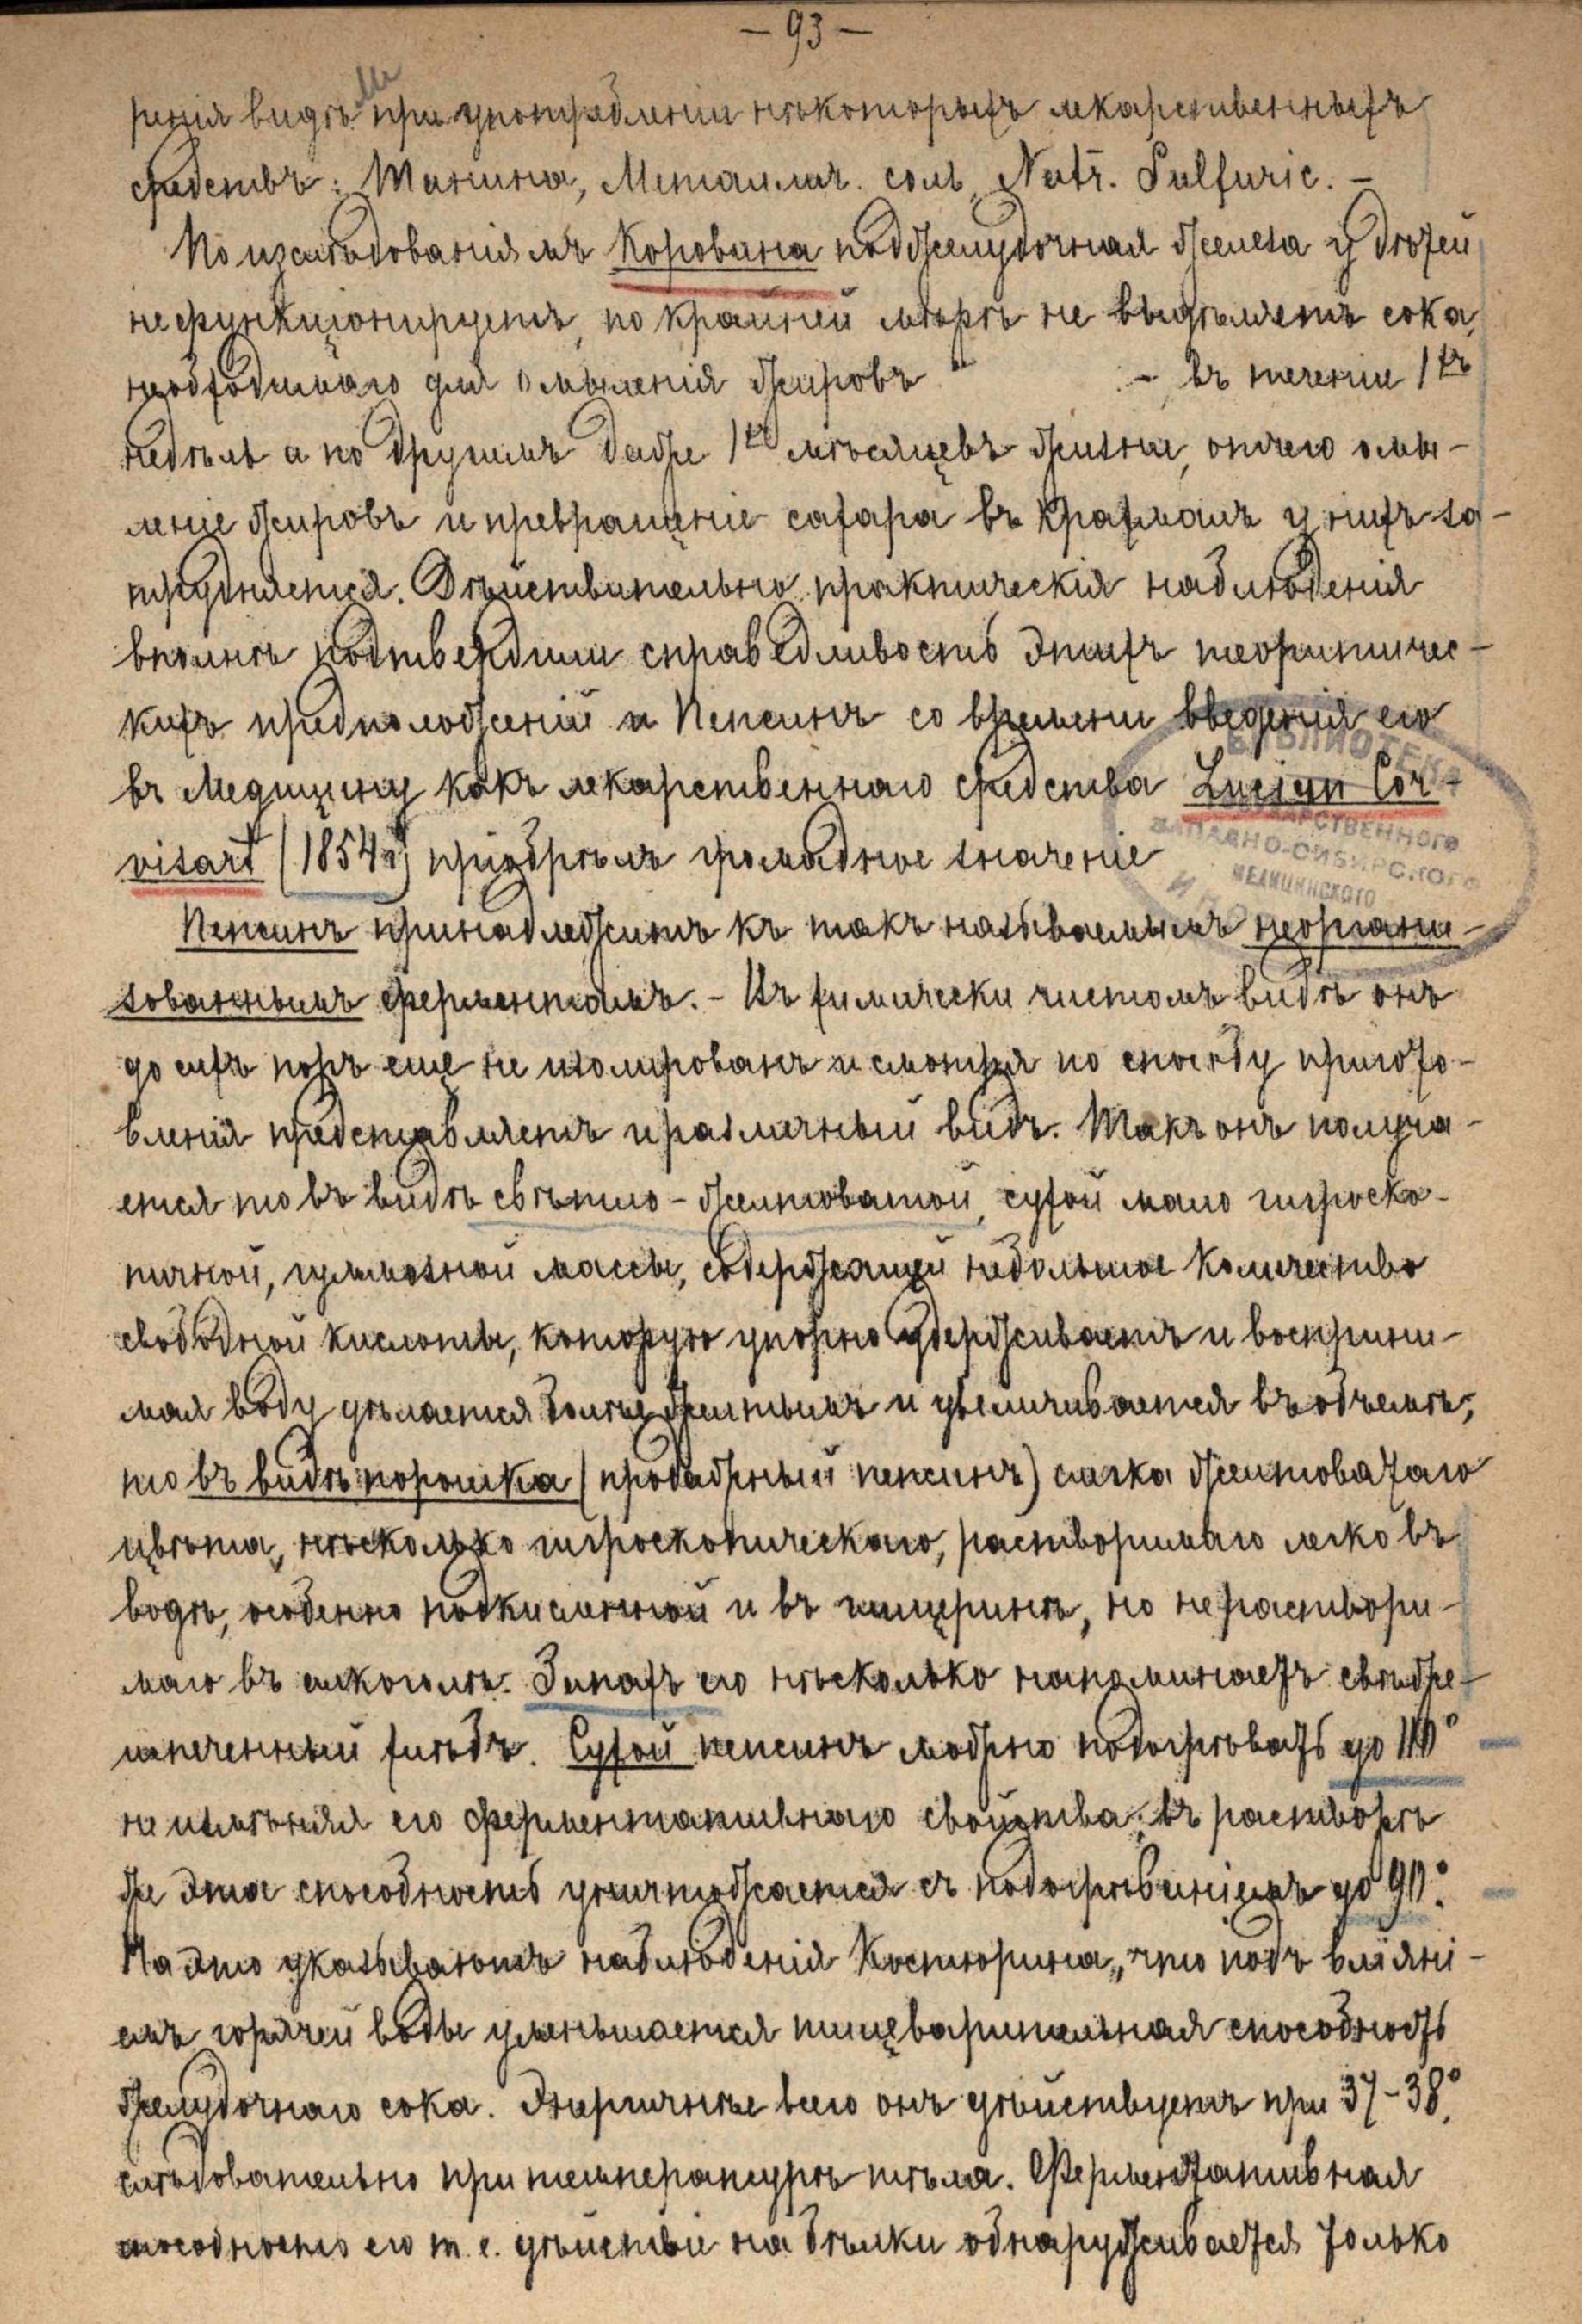 — 93 —
ренія видѣли при употребленіи нѣкоторыхъ лекарственныхъ
средствъ: Танина, Металлич. соль, Natr. Sulfuric. –
По изслѣдованіямъ Коровина поджелудочная железа у дѣтей
не функціонируетъ, по крайней мѣрѣ не выдѣляетъ сока,
необходимаго для омыленія жировъ – въ теченіи 1хъ
недѣль а по другимъ даже 1хъ мѣсяцевъ жизни, отчего омы-
леніе жировъ и превращеніе сахара въ крахмалъ у нихъ за-
трудняется. Дѣйствительно практическія наблюденія
вполнѣ подтвердили справедливость этихъ теоритичес-
кихъ предположеній и Пепсинъ со времени введенія его
въ Медицину какъ лекарственнаго средства Lucian Cor-
visart (1854 г) пріобрѣлъ громадное значеніе
Пепсинъ принадлежитъ къ такъ называемымъ неоргани-
зованнымъ ферментамъ. – Въ химически чистомъ видѣ онъ
до сихъ поръ еще не изолированъ и смотря по способу пригото-
вленія представляетъ и различный видъ. Такъ онъ получа-
ется то въ видѣ свѣтло-желтоватой, сухой мало гигроско-
пичной, гуммозной массы, содержащей небольшое количество
свободной кислоты, которую упорно удерживаетъ и восприни-
мая воду дѣлается болѣе желтымъ и увеличивается въ объемѣ;
то въ видѣ порошка (продажный пепсинъ) слегка желтоватаго
цвѣта, нѣсколько гигроскопическаго, растворимаго легко въ
водѣ, особенно подкисленной и въ глицеринѣ, но не раствори-
маго въ алкоголѣ. Запахъ его нѣсколько напоминаетъ свѣже-
испеченный хлѣбъ. Сухой пепсинъ можно подогрѣвать до 110°
не измѣняя его ферментативнаго свойства; въ растворѣ
же эта способность уничтожается съ подогрѣваніемъ до 90°.
На это указываютъ наблюденія Костюрина, „что подъ вліяні-
емъ горячей воды уменьшается пищеварительная способность
желудочнаго сока. Энергичнѣе всего онъ дѣйствуетъ при 37–38°,
слѣдовательно при температурѣ тѣла. Ферментативная
способность его т. е. дѣйствіе на бѣлки обнаруживается только
БИБЛИОТЕКА
ГОСУДАРСТВЕННОГО
ЗАПАДНО-СИБИРСКОГО
МЕДИЦИНСКОГО